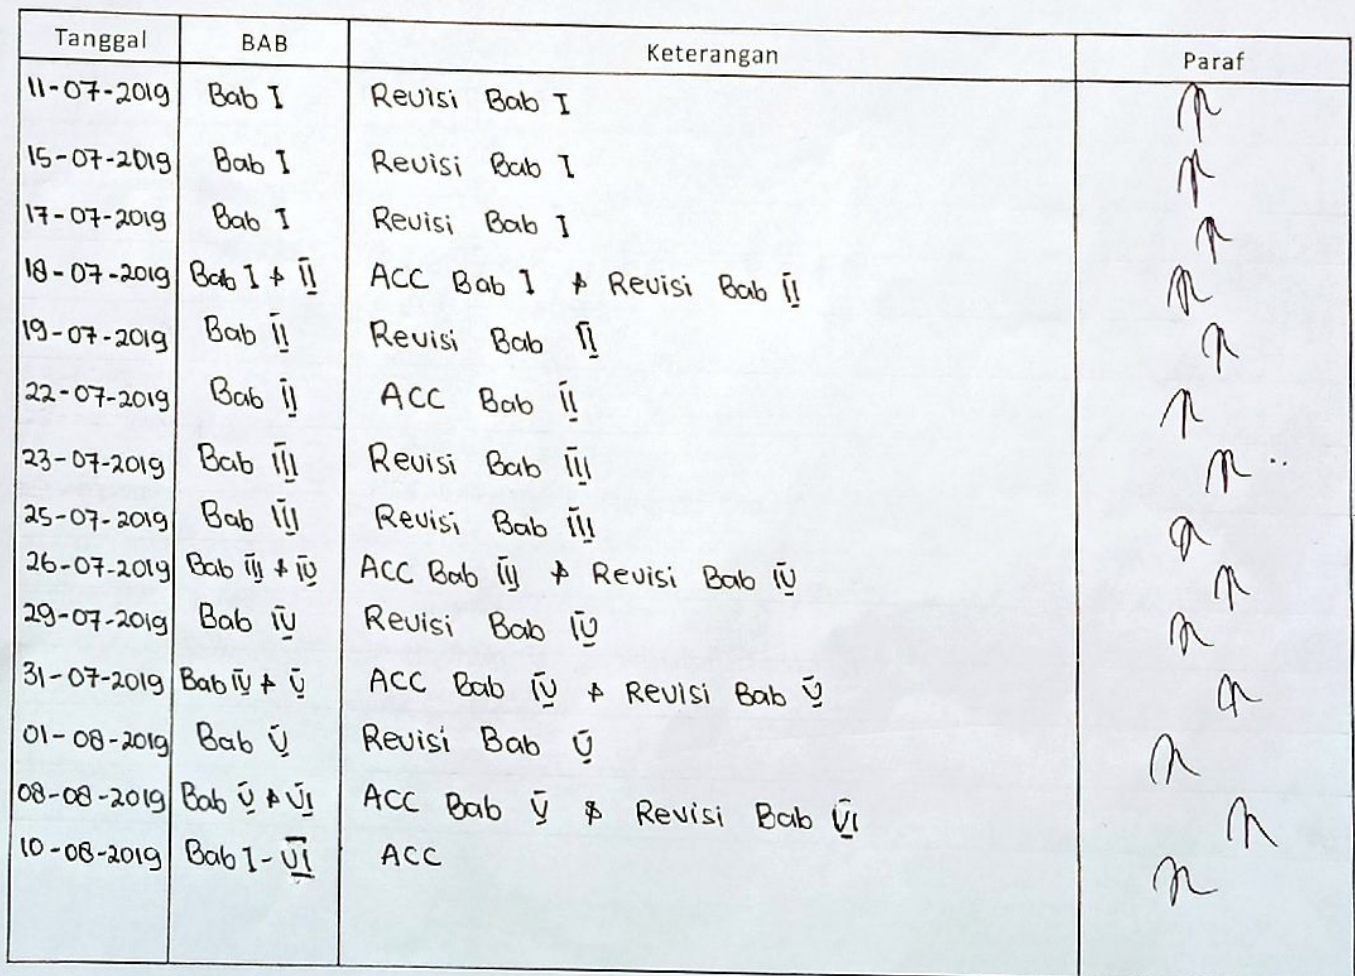 Tanggal BAB Keterangan Paraf
11-07-2019 Bab I Revisi Bab I
15-07-2019 Bab I Revisi Bab I
17-07-2019 Bab I Revisi Bab I
18-07-2019 Bab I & II ACC Bab I & Revisi Bab II
19-07-2019 Bab II Revisi Bab II
22-07-2019 Bab II ACC Bab II
23-07-2019 Bab III Revisi Bab III
25-07-2019 Bab III Revisi Bab III
26-07-2019 Bab III & IV ACC Bab III & Revisi Bab IV
29-07-2019 Bab IV Revisi Bab IV
31-07-2019 Bab IV & V ACC Bab IV & Revisi Bab V
01-08-2019 Bab V Revisi Bab V
08-08-2019 Bab V & VI ACC Bab V & Revisi Bab VI
10-08-2019 Bab I - VI ACC